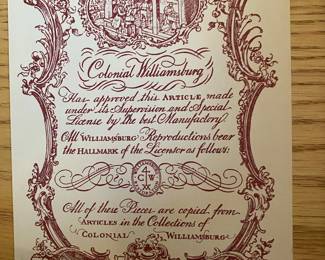 Colonial Williamsburg
Has approved this ARTICLE, made
under its Supervision and Special
License by the best Manufactory.
All WILLIAMSBURG Reproductions bear
the HALLMARK of the Licensor as follows:
C W
All of these Pieces are copied from
ARTICLES in the Collections of
COLONIAL WILLIAMSBURG